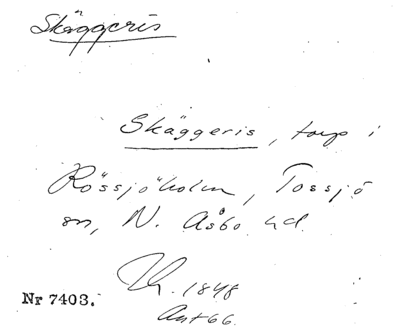 Skäggeris
Skäggeris, torp i
Rössjöholm, Tossjö
sn, N. Åsbo hd.
1848
Nr 7403.
Ant 66.